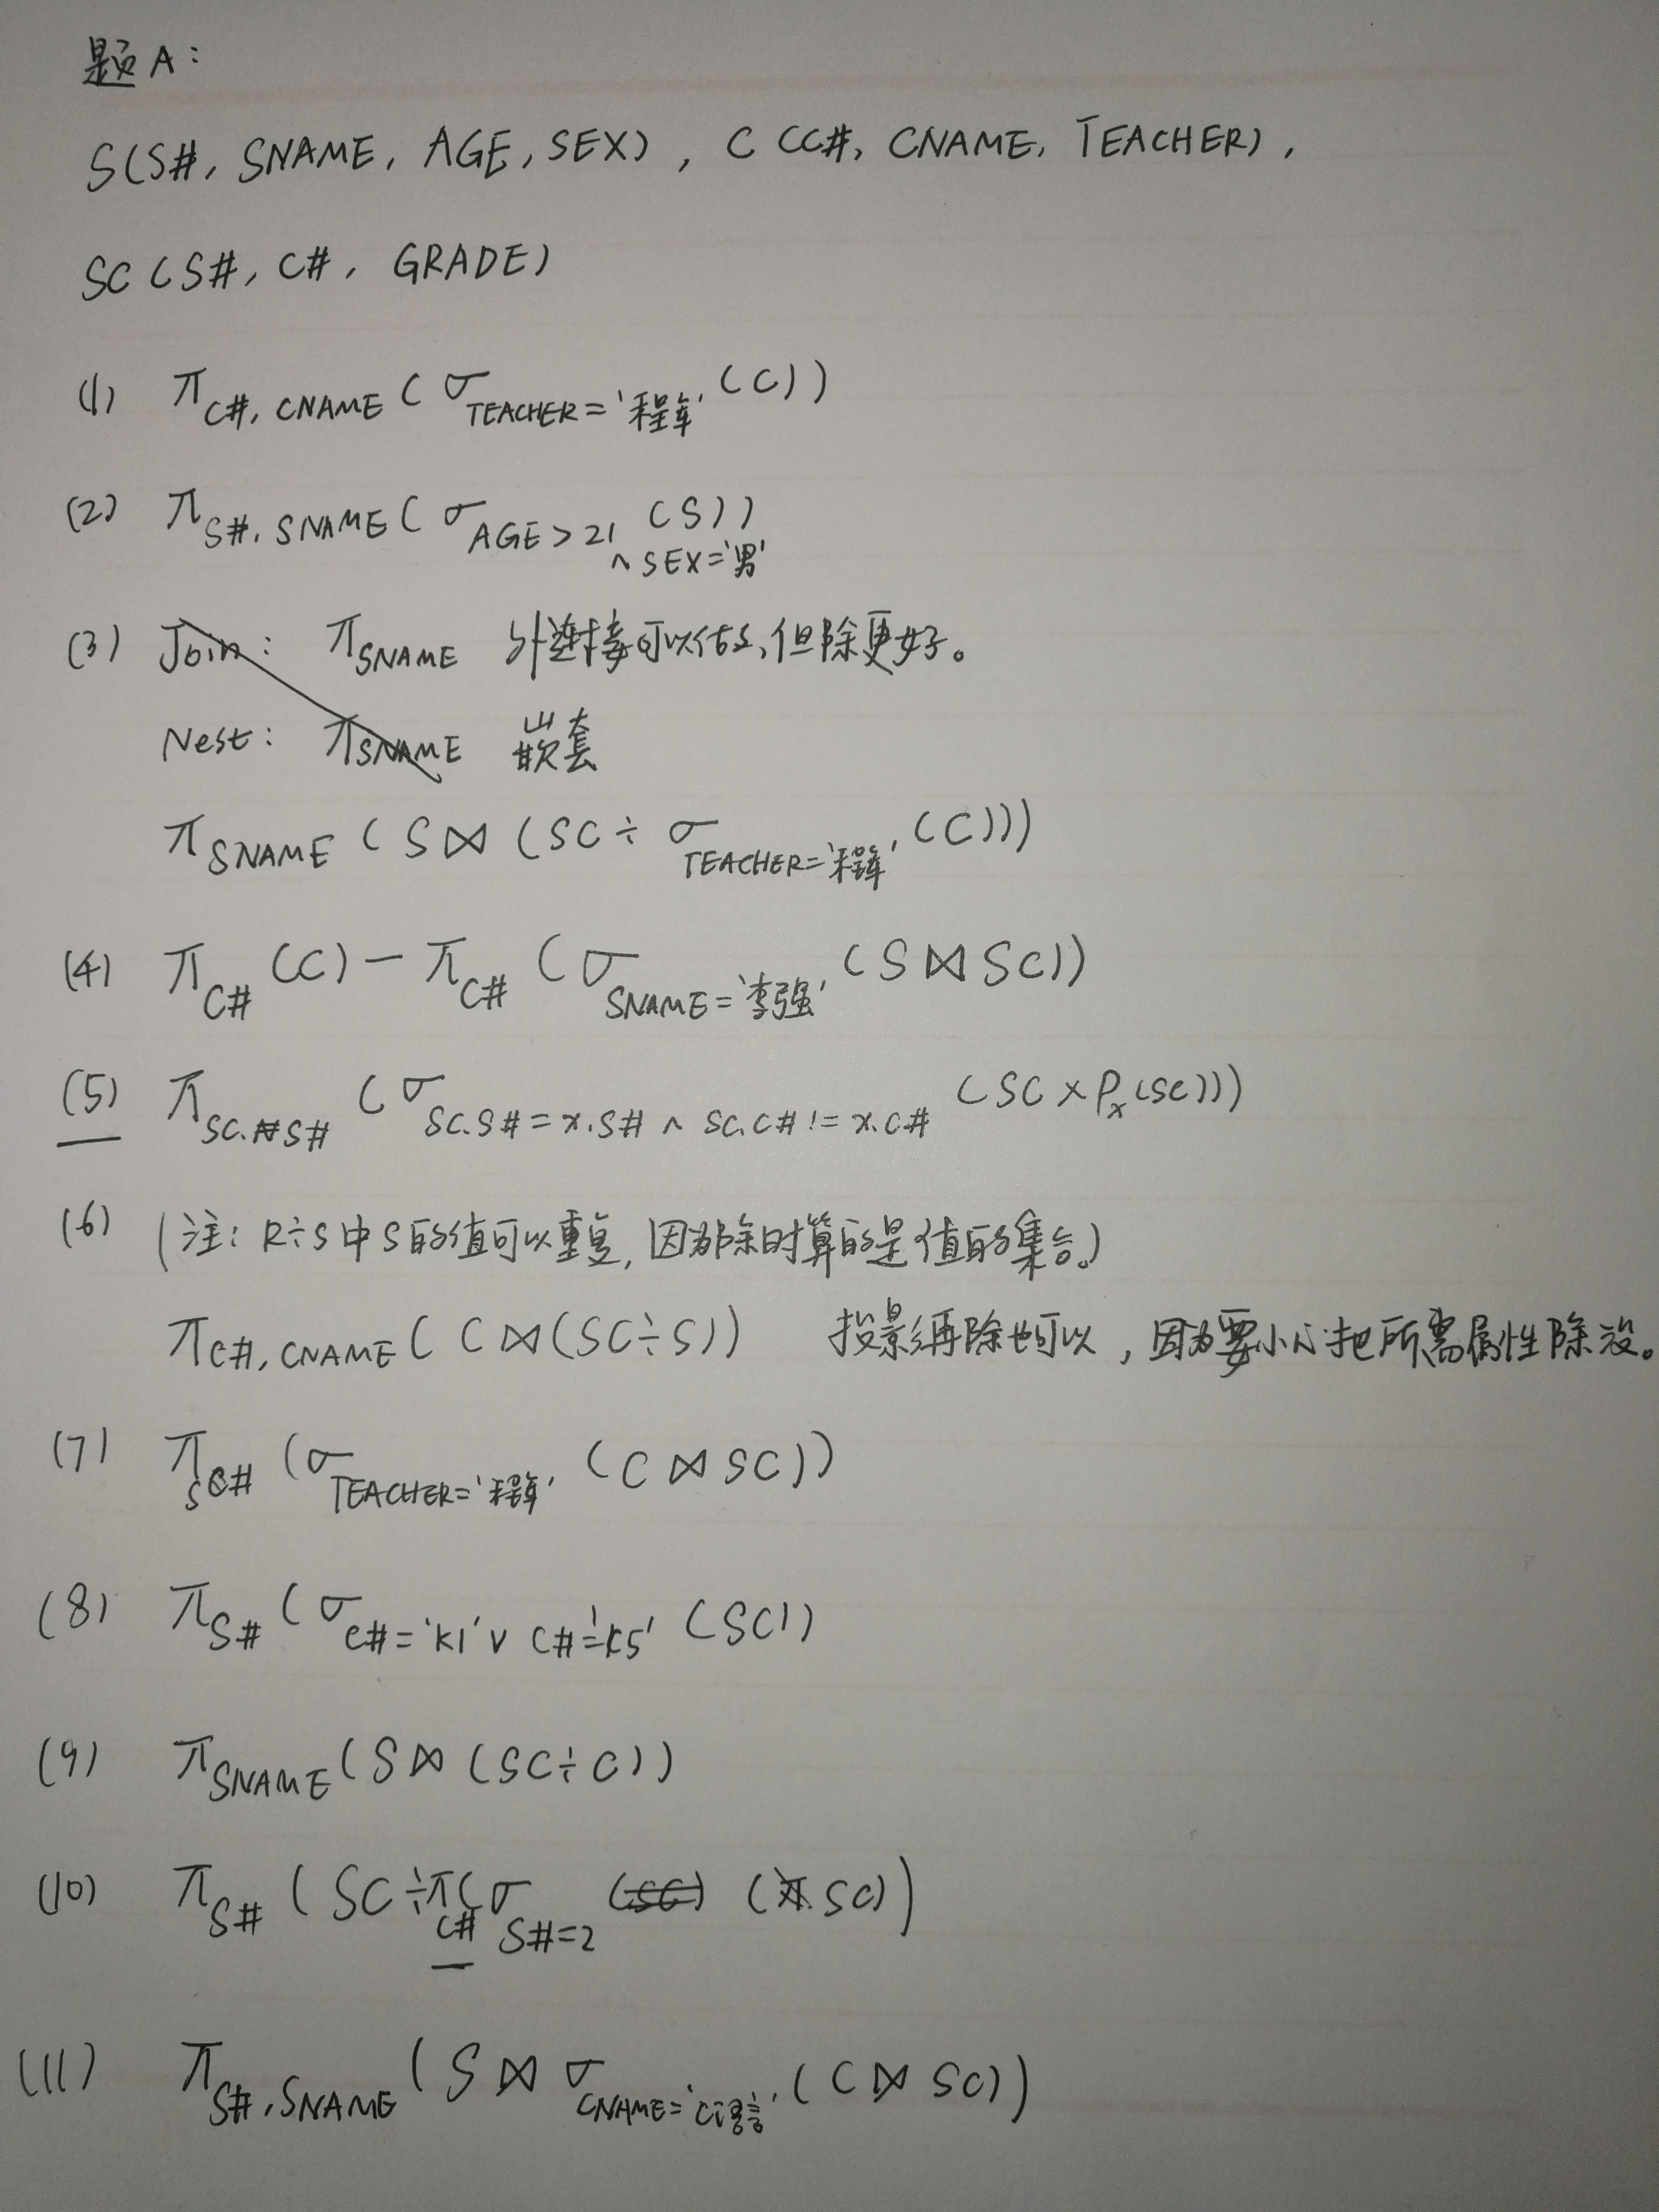 题A:
S(S#, SNAME, AGE, SEX), C(C#, CNAME, TEACHER),
SC(S#, C#, GRADE)
(1) π C#, CNAME (σ TEACHER='程军' (C))
(2) π S#, SNAME (σ AGE>21 ∧ SEX='男' (S))
(3) Join: π SNAME 外连接可以做, 但除更好。
Nest: π SNAME 嵌套
π SNAME (S⋈(SC÷σ TEACHER='程军' (C)))
(4) π C# (C) - π C# (σ SNAME='李强' (S⋈SC))
(5) π SC.S# (σ SC.S#=x.S# ∧ SC.C#!=x.C# (SC×ρx(SC)))
(6) (注: R÷S中S的值可以重复, 因为除时算的是值的集合。)
π C#, CNAME (C⋈(SC÷S)) 投影再除也可以, 因为要小心把所需属性除没。
(7) π S# (σ TEACHER='程军' (C⋈SC))
(8) π S# (σ C#='K1' ∨ C#='K5' (SC))
(9) π SNAME (S⋈(SC÷C))
(10) π S# (SC÷π C# (σ S#=2 (SC))
(11) π S#, SNAME (S⋈σ CNAME='C语言' (C⋈SC))